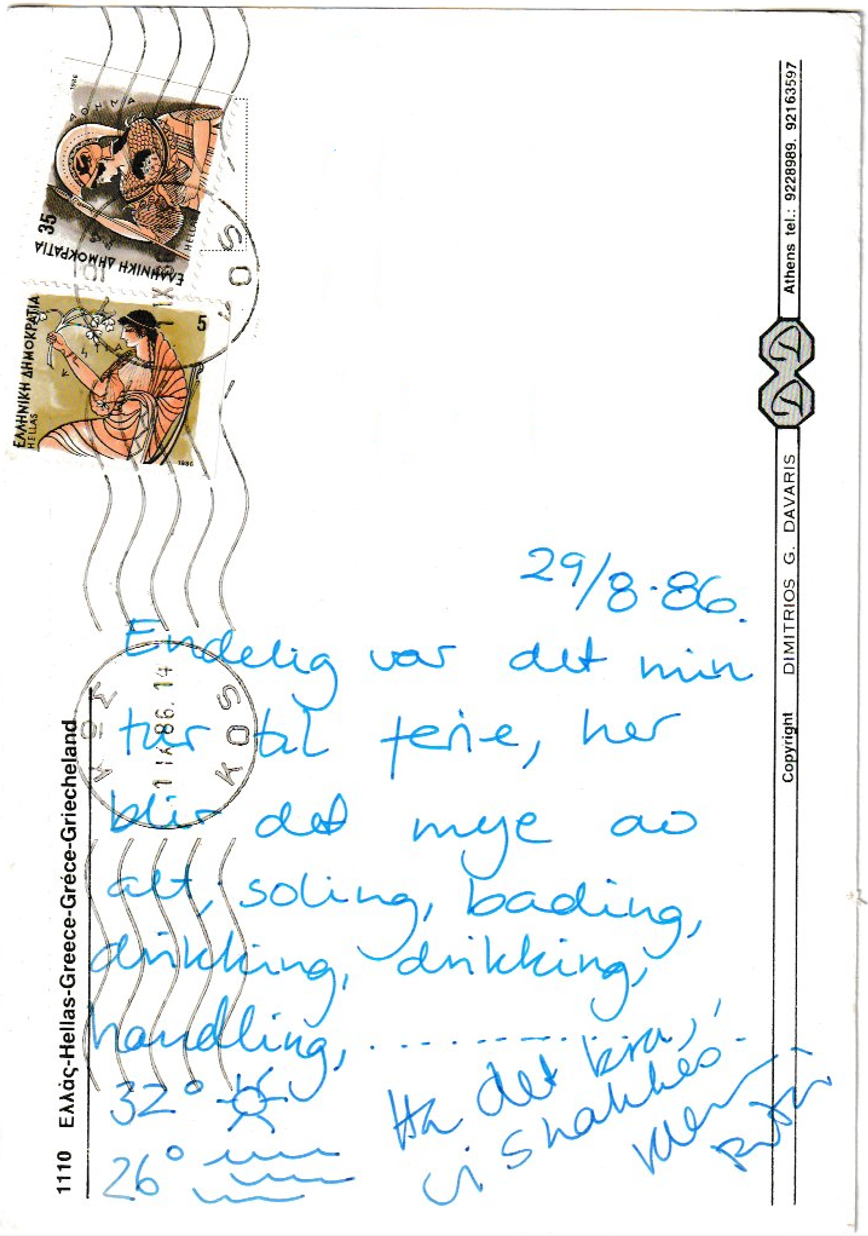 29/8-86.
Endelig var det min
tur til ferie, her
blir det mye av
alt, soling, bading,
drikking, drikking,
handling, ..........
Ha det bra,
vi snakkes
32°
26°
ΑΘΗΝΑ
1986
35
HELLAS
ΕΛΛΗΝΙΚΗ ΔΗΜΟΚΡΑΤΙΑ
5
ΕΛΛΗΝΙΚΗ ΔΗΜΟΚΡΑΤΙΑ
HELLAS
1986
ΚΩΣ
1 IX 86. 14
KOS
1110 Ελλάς-Hellas-Greece-Gréce-Griecheland
Copyright DIMITRIOS G. DAVARIS DD Athens tel.: 9228989. 92163597